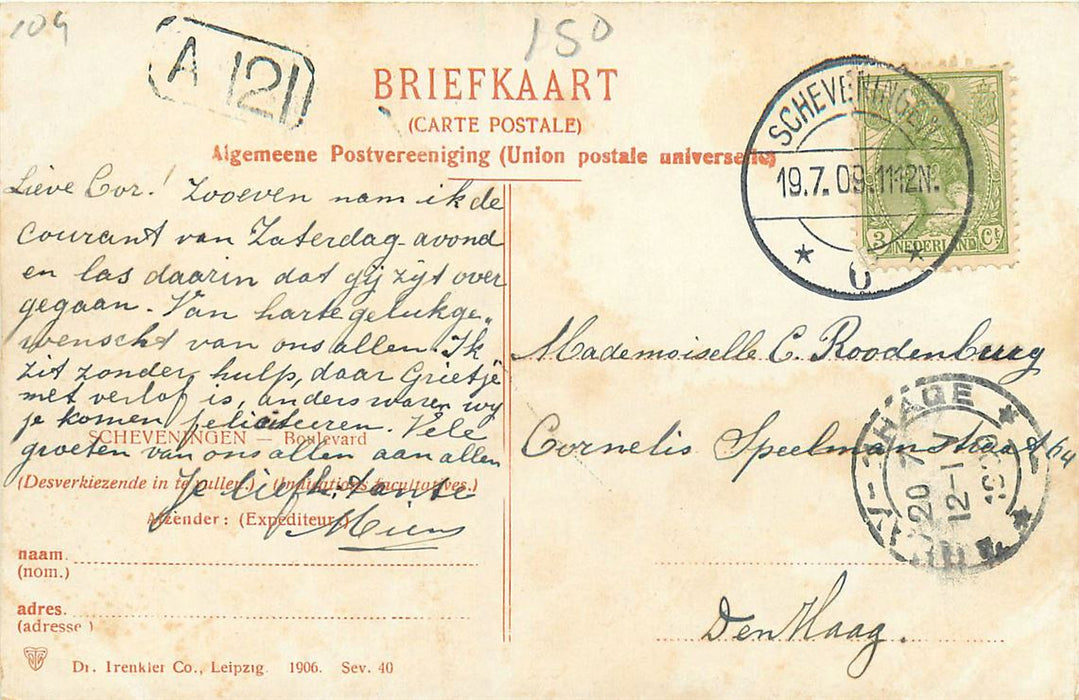 104
150
A 121
BRIEFKAART
(CARTE POSTALE)
Algemeene Postvereeniging (Union postale universelle)
SCHEVENINGEN
19.7.09.1112N.
6
3 NEDERLAND Ct
Lieve Cor! Zooeven nam ik de
courant van Zaterdag-avond
en las daarin dat gij zijt over
gegaan. Van harte gelukge„
wenscht van ons allen. Ik
zit zonder hulp, daar Grietje
met verlof is, anders waren wij
je komen feliciteeren. Vele
groeten van ons allen aan allen
Je liefh. tante
Miens
SCHEVENINGEN — Boulevard
(Desverkiezende in te vullen.) (Indications facultatives.)
Afzender: (Expéditeur.)
naam.
(nom.)
adres.
(adresse)
Dr. Trenkler Co., Leipzig. 1906. Sev. 40
Mademoiselle C. Roodenburg
Cornelis Speelmanstraat 64
Den Haag.
HAGE
20 7
12-1